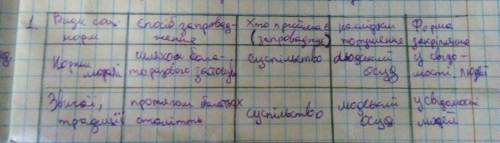 1. Види соц. спосіб запровад- Хто приймає наслідки Форма
норм ження (запроваджує) порушення закріплення
Норми шляхом бага- суспільство людський у свідо-
моралі торазового застосув. осуд мості людей
Звичаї, протягом багатьох суспільство людський у свідомості
традиції століть осуд людей